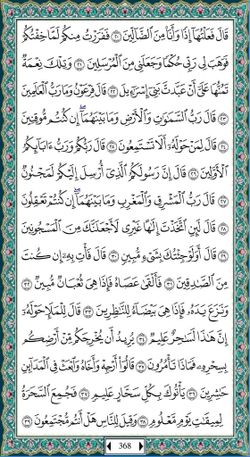 قَالَ فَعَلْتُهَا إِذًا وَأَنَا مِنَ الضَّالِّينَ ٢٠ فَفَرَرْتُ مِنكُمْ لَمَّا خِفْتُكُمْ
فَوَهَبَ لِي رَبِّي حُكْمًا وَجَعَلَنِي مِنَ الْمُرْسَلِينَ ٢١ وَتِلْكَ نِعْمَةٌ
تَمُنُّهَا عَلَيَّ أَنْ عَبَّدتَّ بَنِي إِسْرَائِيلَ ٢٢ قَالَ فِرْعَوْنُ وَمَا رَبُّ الْعَالَمِينَ
٢٣ قَالَ رَبُّ السَّمَاوَاتِ وَالْأَرْضِ وَمَا بَيْنَهُمَا إِن كُنتُم مُّوقِنِينَ
٢٤ قَالَ لِمَنْ حَوْلَهُ أَلَا تَسْتَمِعُونَ ٢٥ قَالَ رَبُّكُمْ وَرَبُّ آبَائِكُمُ
الْأَوَّلِينَ ٢٦ قَالَ إِنَّ رَسُولَكُمُ الَّذِي أُرْسِلَ إِلَيْكُمْ لَمَجْنُونٌ
٢٧ قَالَ رَبُّ الْمَشْرِقِ وَالْمَغْرِبِ وَمَا بَيْنَهُمَا إِن كُنتُمْ تَعْقِلُونَ
٢٨ قَالَ لَئِنِ اتَّخَذْتَ إِلَٰهًا غَيْرِي لَأَجْعَلَنَّكَ مِنَ الْمَسْجُونِينَ
٢٩ قَالَ أَوَلَوْ جِئْتُكَ بِشَيْءٍ مُّبِينٍ ٣٠ قَالَ فَأْتِ بِهِ إِن كُنتَ
مِنَ الصَّادِقِينَ ٣١ فَأَلْقَىٰ عَصَاهُ فَإِذَا هِيَ ثُعْبَانٌ مُّبِينٌ ٣٢
وَنَزَعَ يَدَهُ فَإِذَا هِيَ بَيْضَاءُ لِلنَّاظِرِينَ ٣٣ قَالَ لِلْمَلَإِ حَوْلَهُ
إِنَّ هَٰذَا لَسَاحِرٌ عَلِيمٌ ٣٤ يُرِيدُ أَن يُخْرِجَكُم مِّنْ أَرْضِكُم
بِسِحْرِهِ فَمَاذَا تَأْمُرُونَ ٣٥ قَالُوا أَرْجِهْ وَأَخَاهُ وَابْعَثْ فِي الْمَدَائِنِ
حَاشِرِينَ ٣٦ يَأْتُوكَ بِكُلِّ سَحَّارٍ عَلِيمٍ ٣٧ فَجُمِعَ السَّحَرَةُ
لِمِيقَاتِ يَوْمٍ مَّعْلُومٍ ٣٨ وَقِيلَ لِلنَّاسِ هَلْ أَنتُم مُّجْتَمِعُونَ ٣٩
368